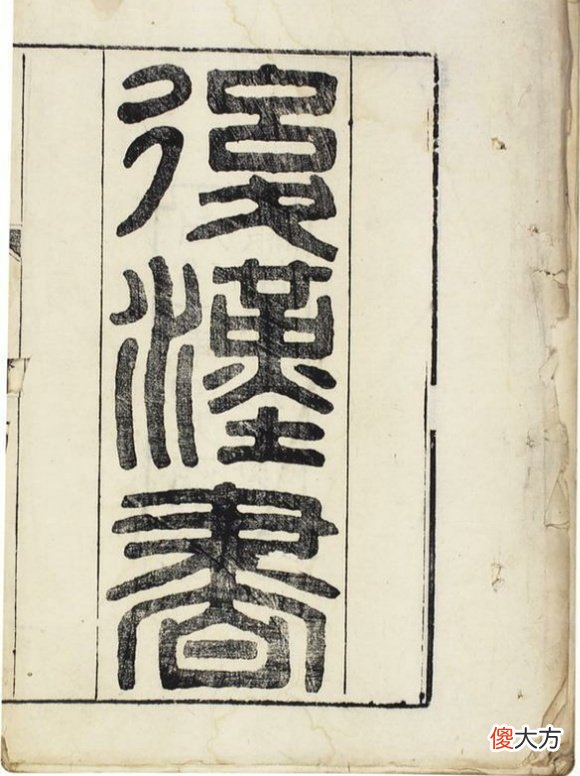 後漢書
傻大方